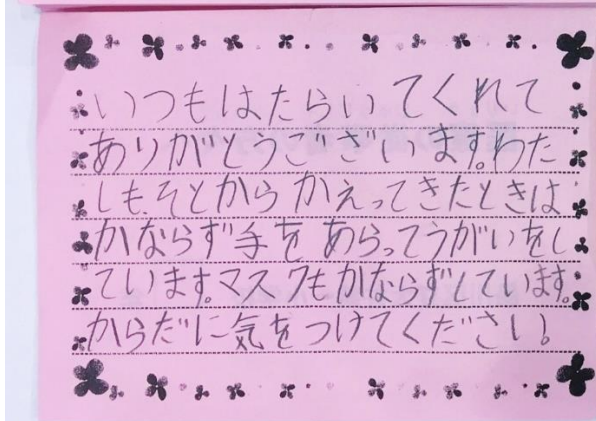 いつもはたらいてくれて
ありがとうございます。わた
しも、そとからかえってきたときは
かならず手をあらってうがいをし
ています。マスクもかならずしています。
からだに気をつけてください。